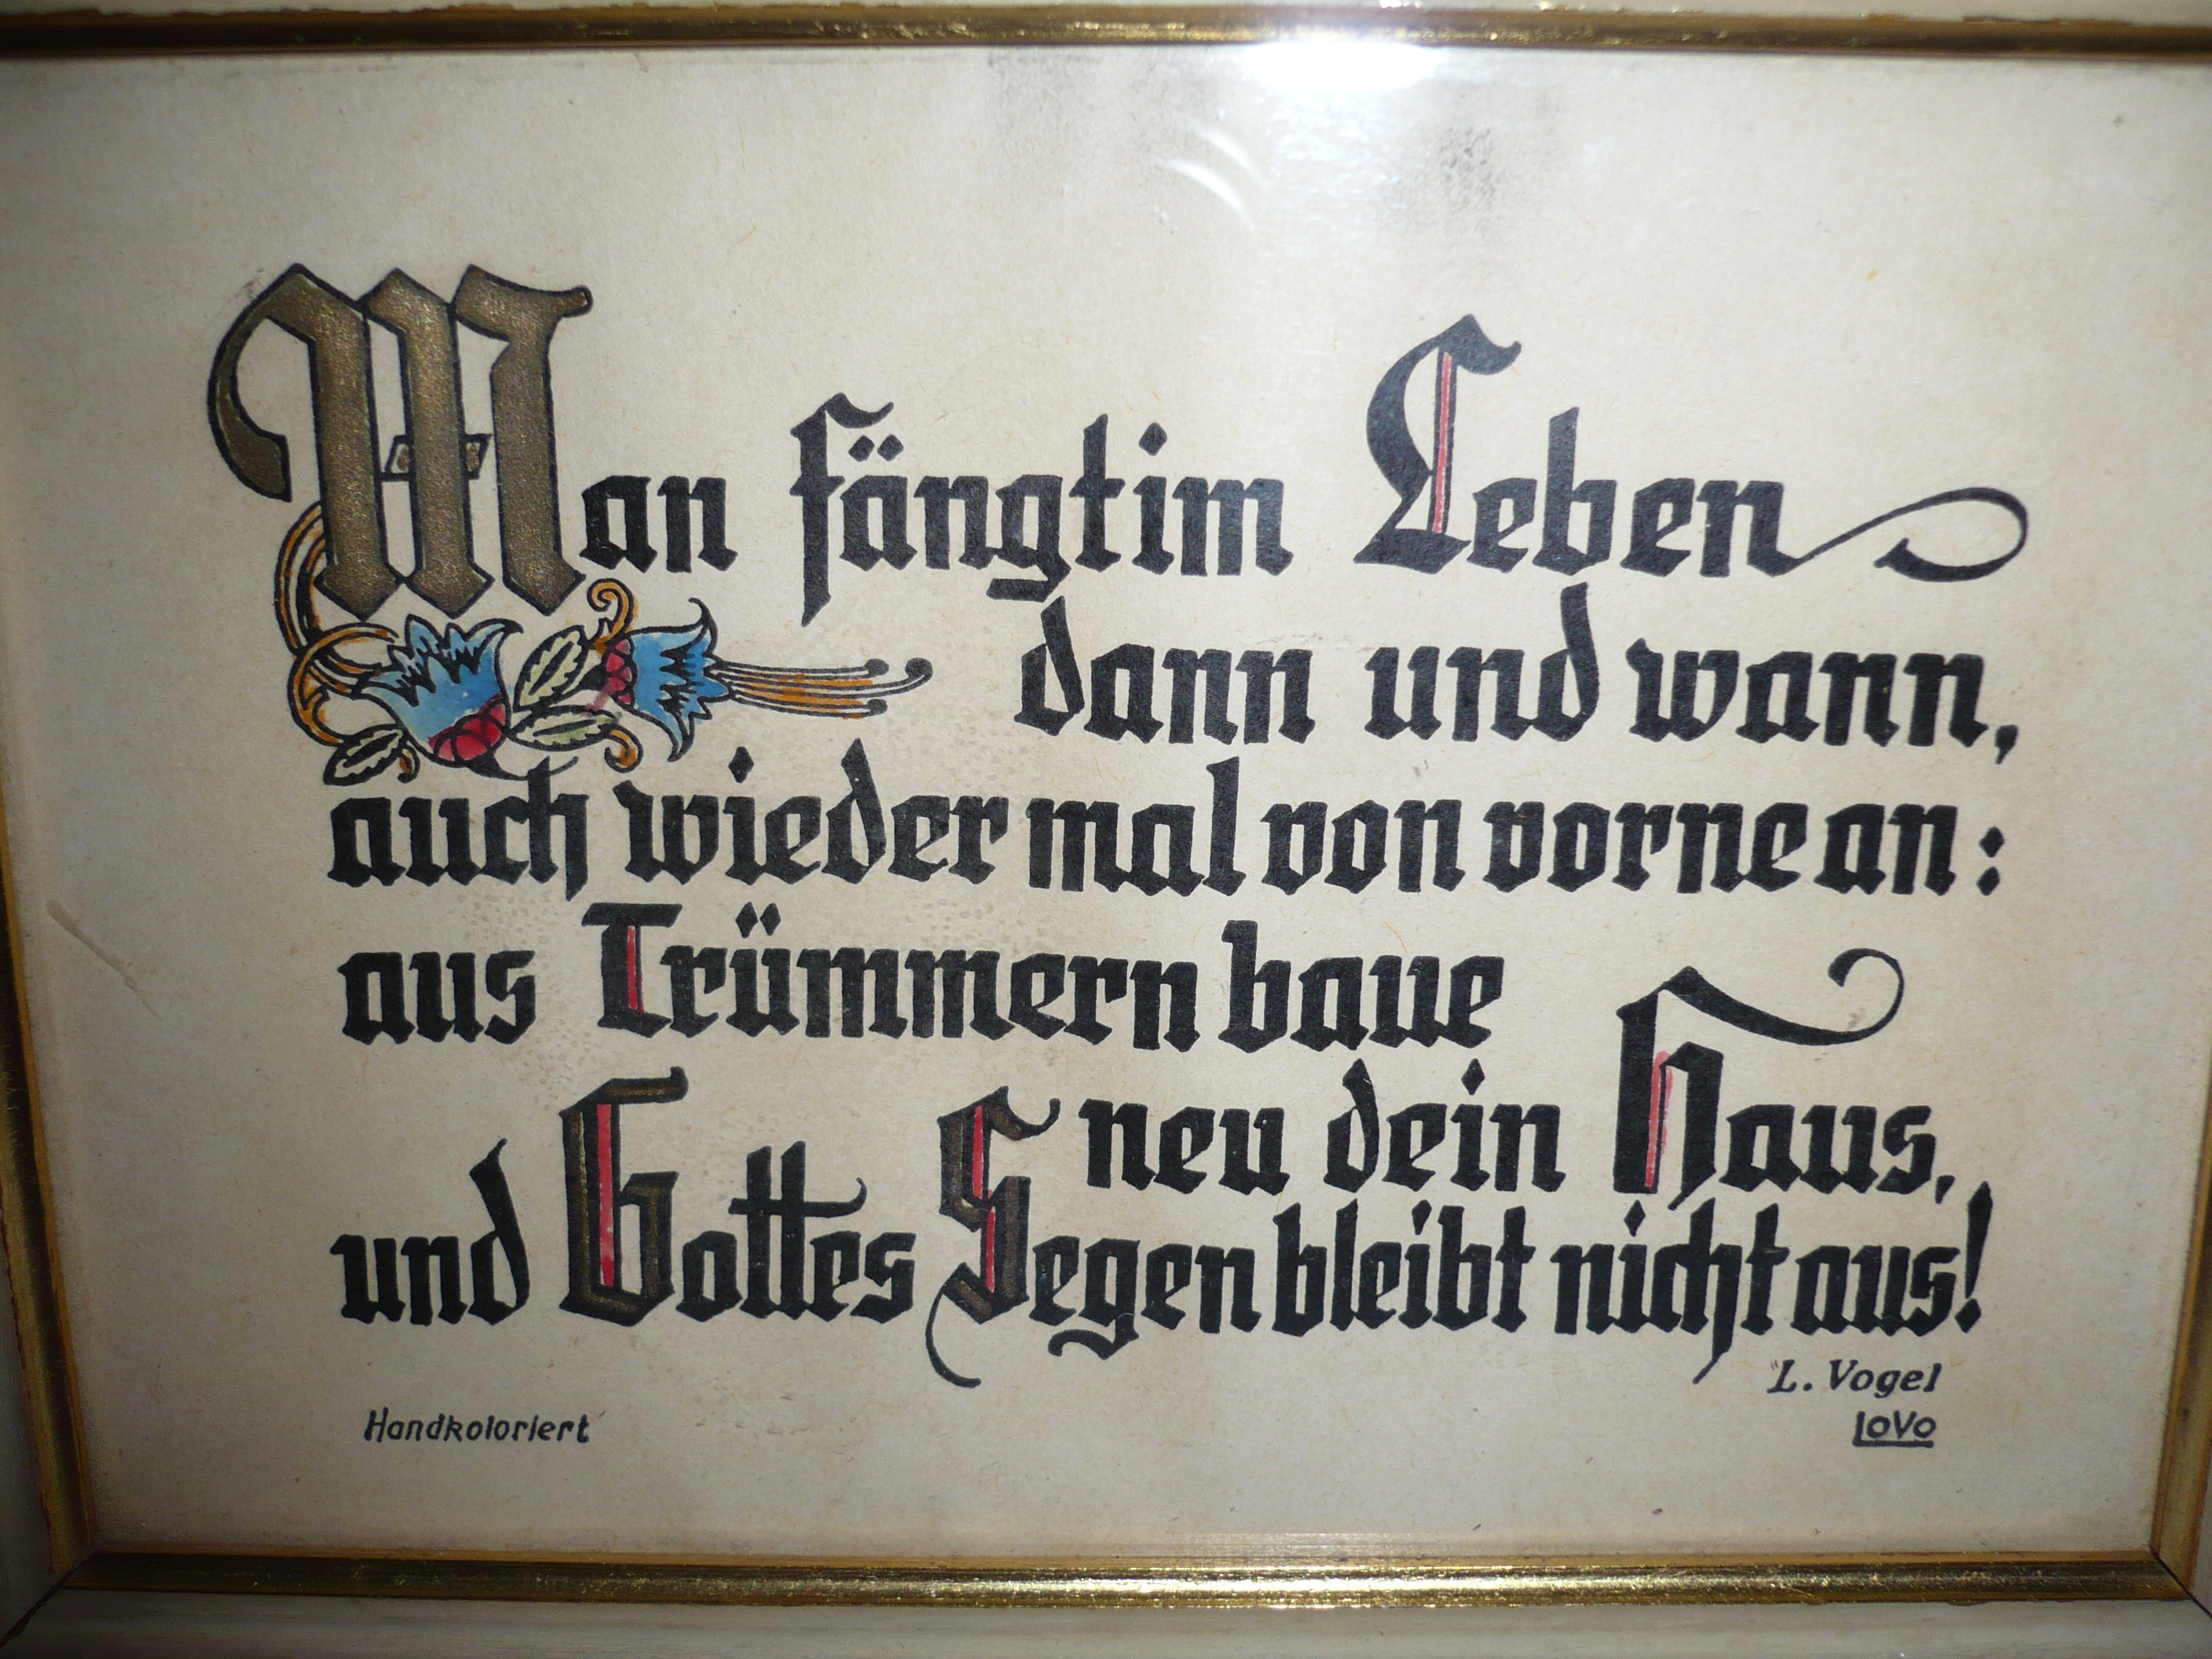 Man fängt im Leben
dann und wann,
auch wieder mal von vorne an:
aus Trümmern baue
neu dein Haus,
und Gottes Segen bleibt nicht aus!
L. Vogel
Handkoloriert
LoVo